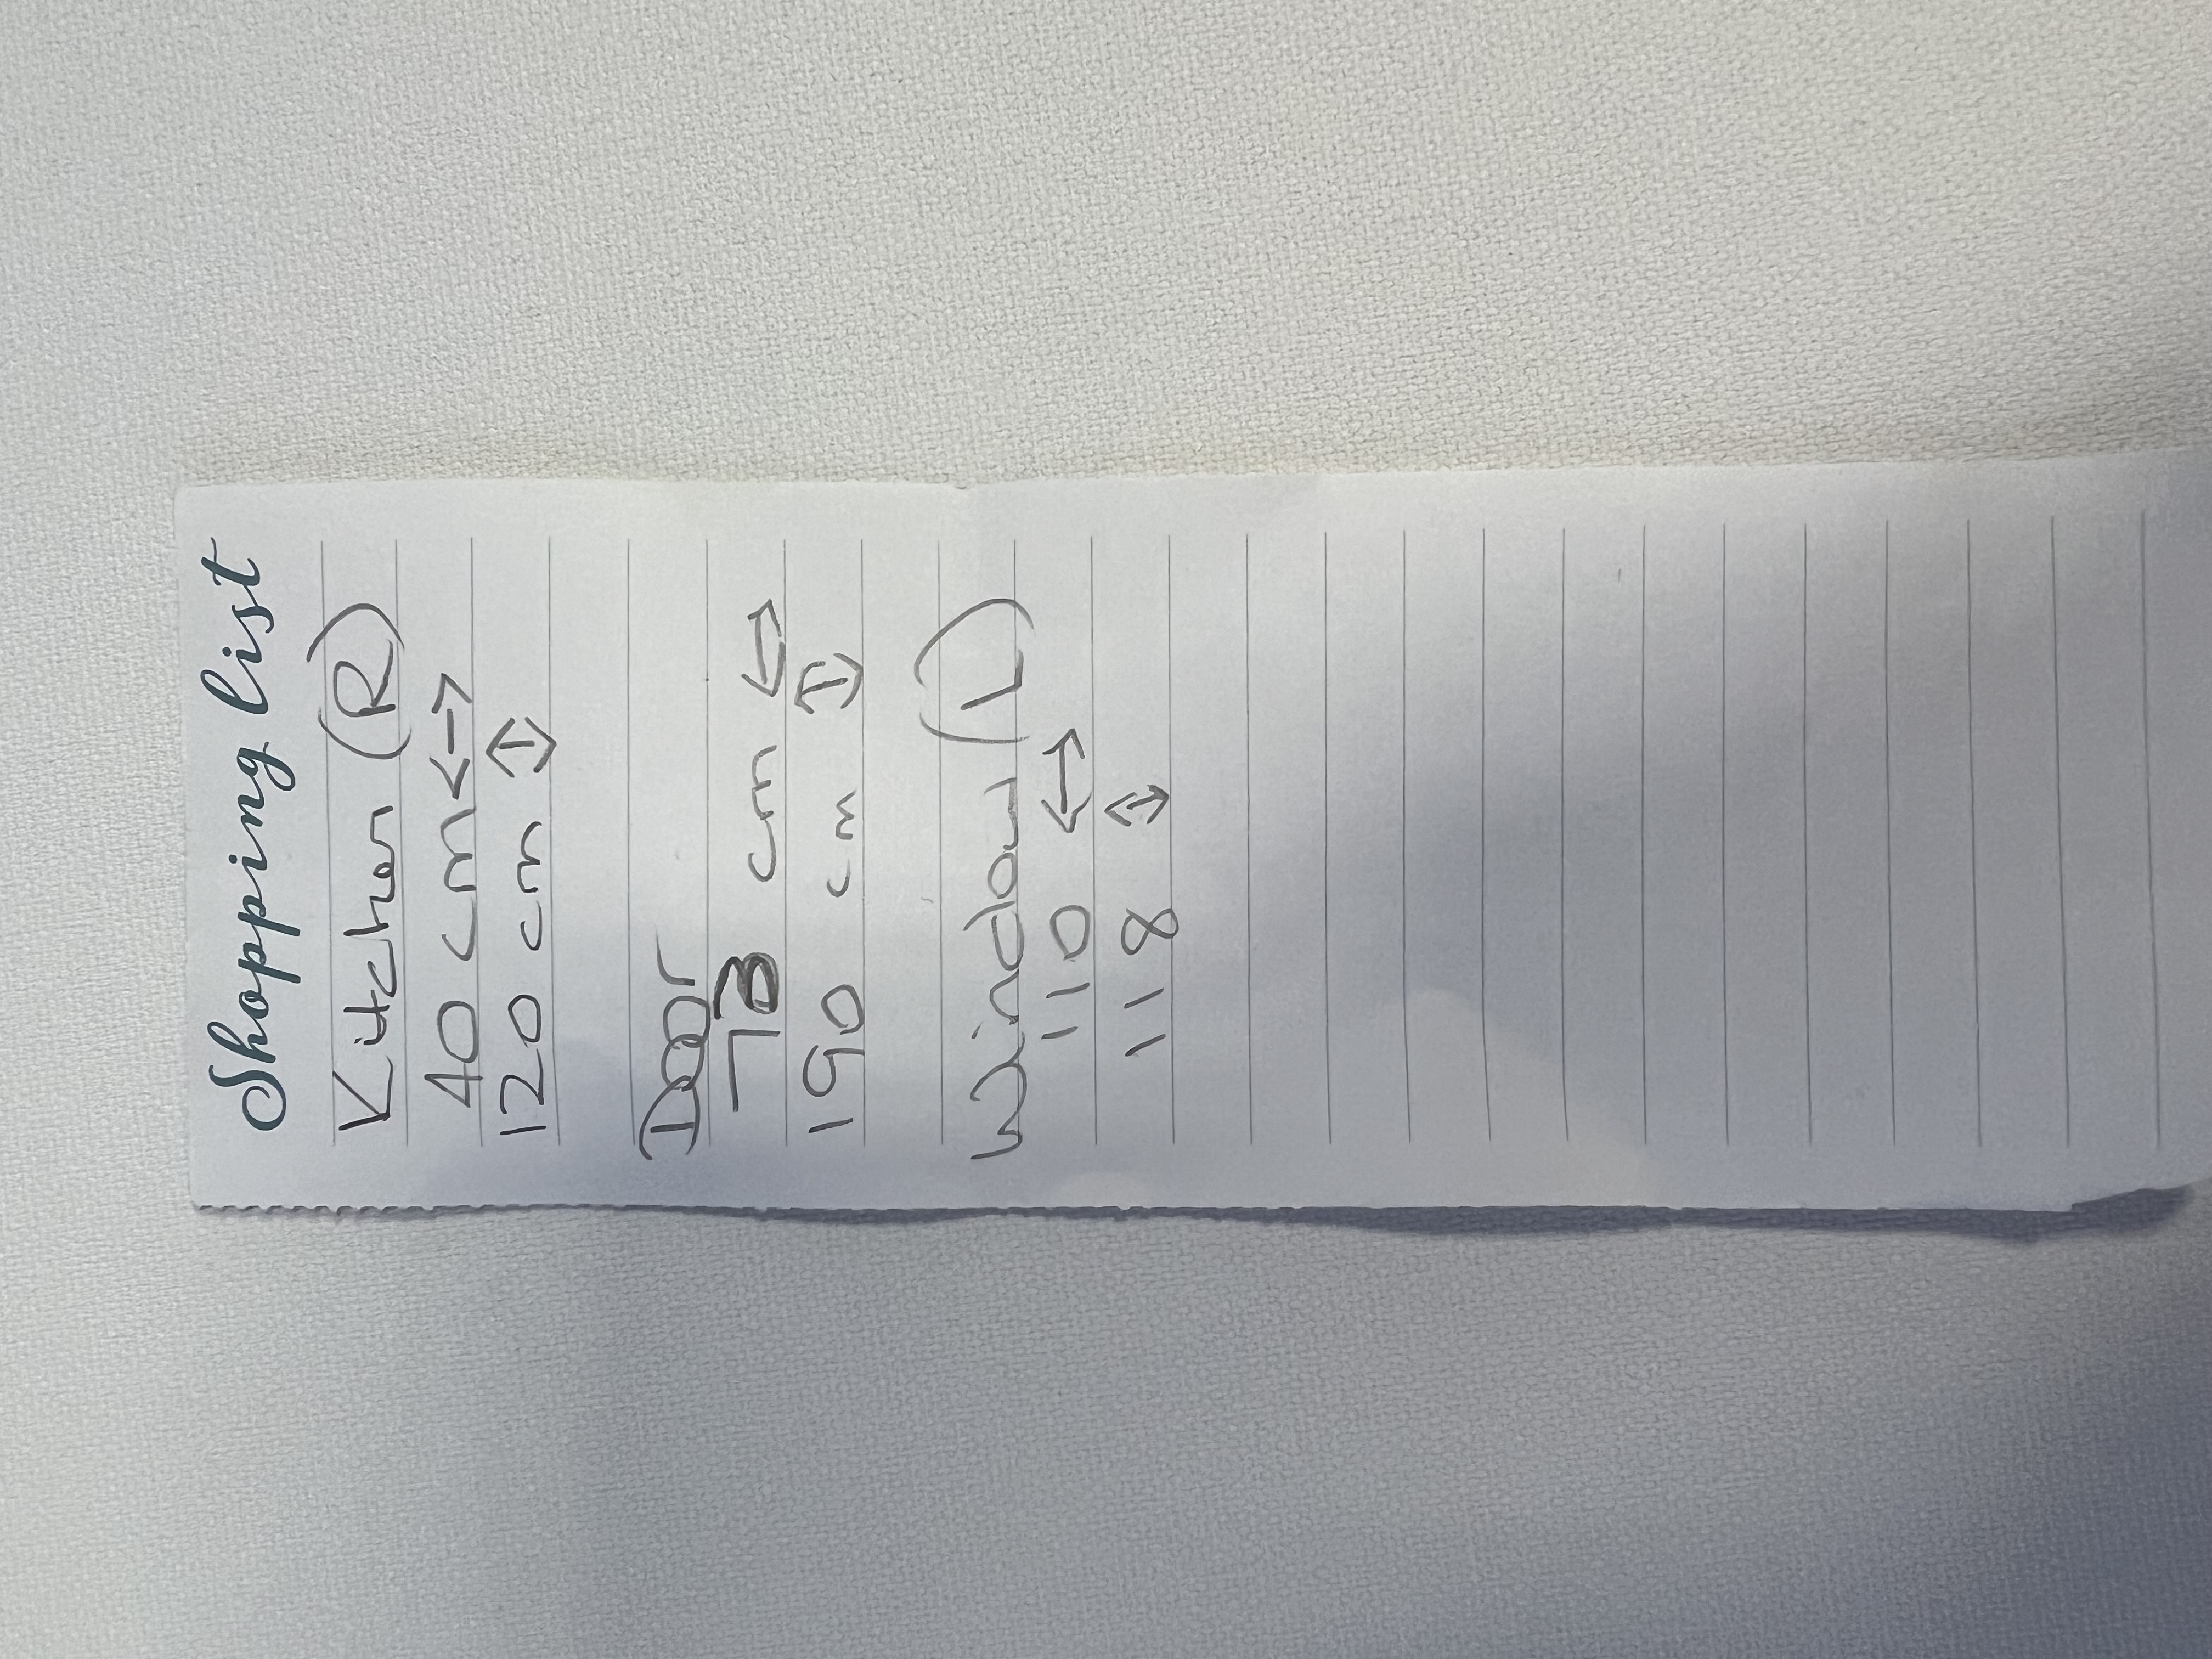 Shopping list
Kitchen (R)
40 cm <->
120 cm ↕
Door
73 cm ↔
190 cm ↕
Window (L)
110 ↔
118 ↕